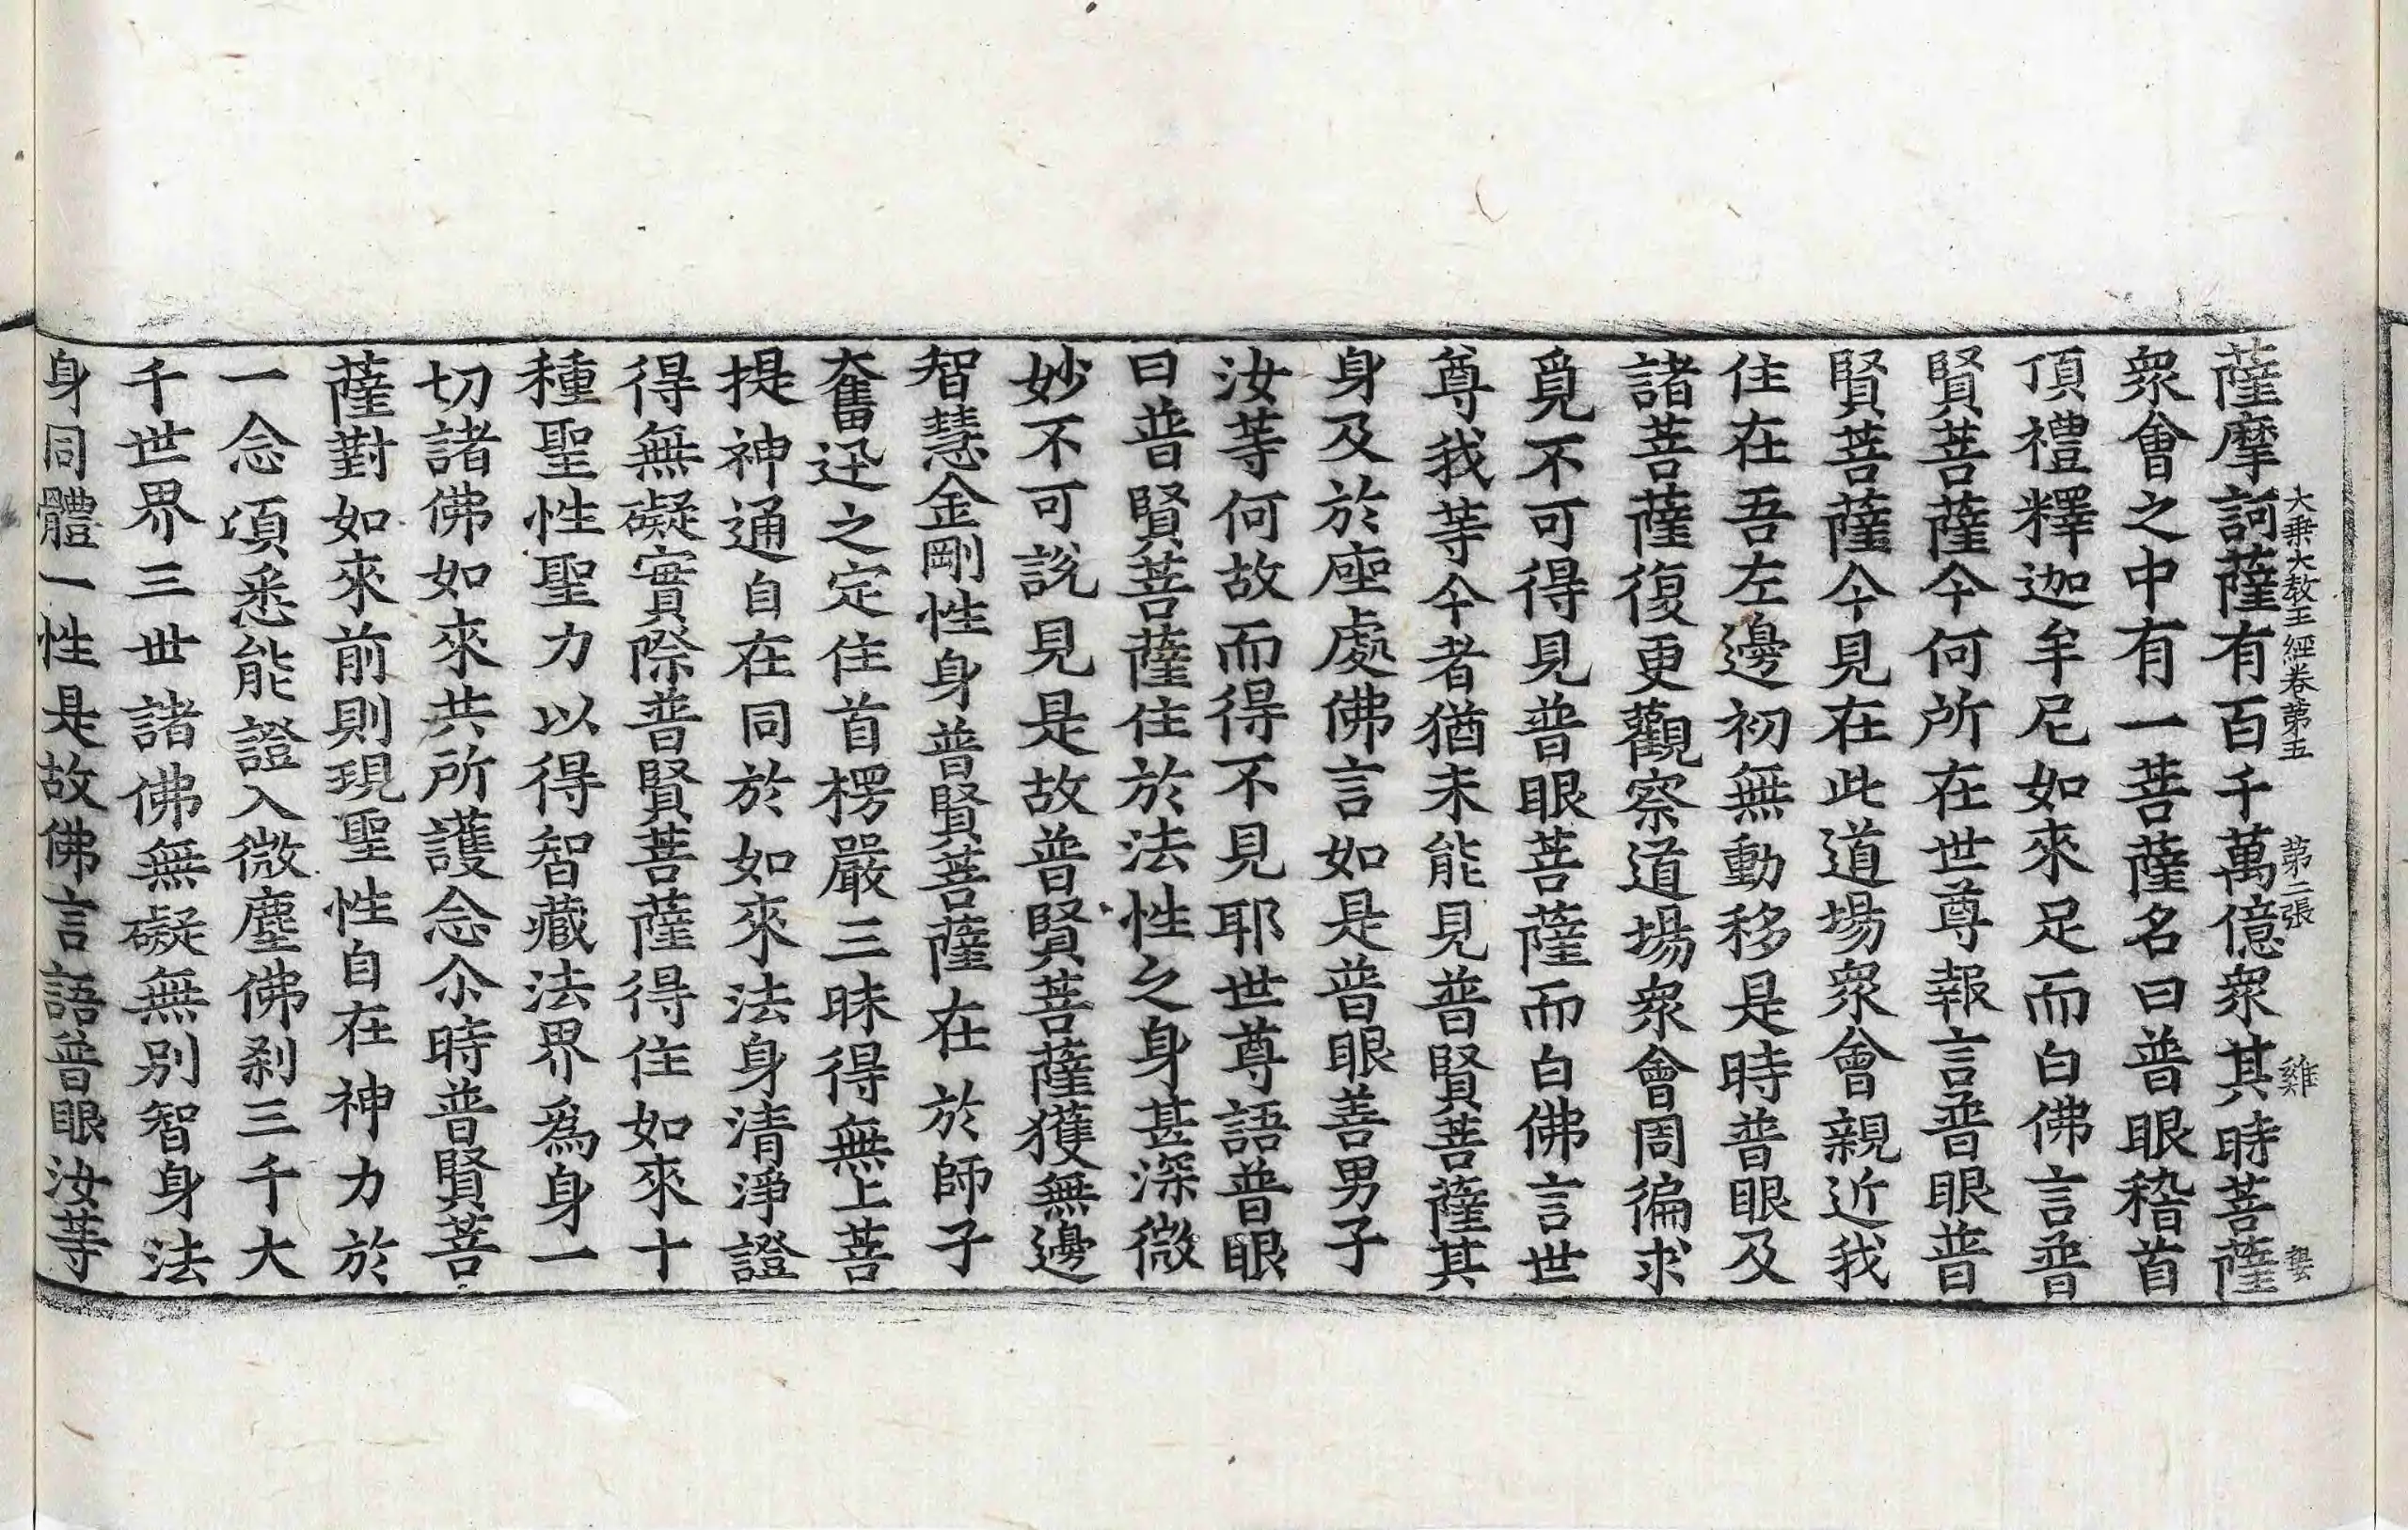 大乗大教王經卷第五 第二張 雞
薩摩訶薩有百千萬億衆其時菩薩
衆會之中有一菩薩名曰普眼稽首
頂禮釋迦牟尼如來足而白佛言普
賢菩薩今何所在世尊報言普眼普
賢菩薩今見在此道場衆會親近我
住在吾左邊初無動移是時普眼及
諸菩薩復更觀察道場衆會周徧求
覓不可得見普眼菩薩而白佛言世
尊我等今者猶未能見普賢菩薩其
身及於座處佛言如是普眼善男子
汝等何故而得不見耶世尊語普眼
曰普賢菩薩住於法性之身甚深微
妙不可說見是故普賢菩薩獲無邊
智慧金剛性身普賢菩薩在於師子
奮迅之定住首楞嚴三昧得無上菩
提神通自在同於如來法身清淨證
得無礙實際普賢菩薩得住如來十
種聖性聖力以得智藏法界爲身一
切諸佛如來共所護念尒時普賢菩
薩對如來前則現聖性自在神力於
一念頃悉能證入微塵佛刹三千大
千世界三世諸佛無礙無別智身法
身同體一性是故佛言語普眼汝等